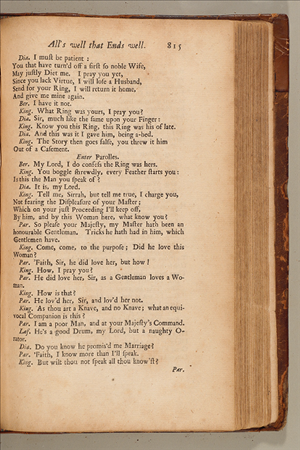 All's well that Ends well. 815
Dia. I must be patient:
You that have turn'd off a first so noble Wife,
May justly Diet me. I pray you yet,
Since you lack Virtue, I will lose a Husband,
Send for your Ring, I will return it home,
And give me mine again.
Ber. I have it not.
King. What Ring was yours, I pray you?
Dia. Sir, much like the same upon your Finger:
King. Know you this Ring, this Ring was his of late.
Dia. And this was it I gave him, being a-bed.
King. The Story then goes false, you threw it him
Out of a Casement.
Enter Parolles.
Ber. My Lord, I do confess the Ring was hers.
King. You boggle shrewdly, every Feather starts you:
Is this the Man you speak of?
Dia. It is, my Lord.
King. Tell me, Sirrah, but tell me true, I charge you,
Not fearing the Displeasure of your Master;
Which on your just Proceeding I'll keep off,
By him, and by this Woman here, what know you?
Par. So please your Majesty, my Master hath been an
honourable Gentleman. Tricks he hath had in him, which
Gentlemen have.
King. Come, come, to the purpose; Did he love this
Woman?
Par. 'Faith, Sir, he did love her, but how?
King. How, I pray you?
Par. He did love her, Sir, as a Gentleman loves a Wo-
man.
King. How is that?
Par. He lov'd her, Sir, and lov'd her not.
King. As thou art a Knave, and no Knave; what an equi-
vocal Companion is this?
Par. I am a poor Man, and at your Majesty's Command.
Laf. He's a good Drum, my Lord, but a naughty O-
rator.
Dia. Do you know he promis'd me Marriage?
Par. 'Faith, I know more than I'll speak.
King. But wilt thou not speak all thou know'st?
Par.